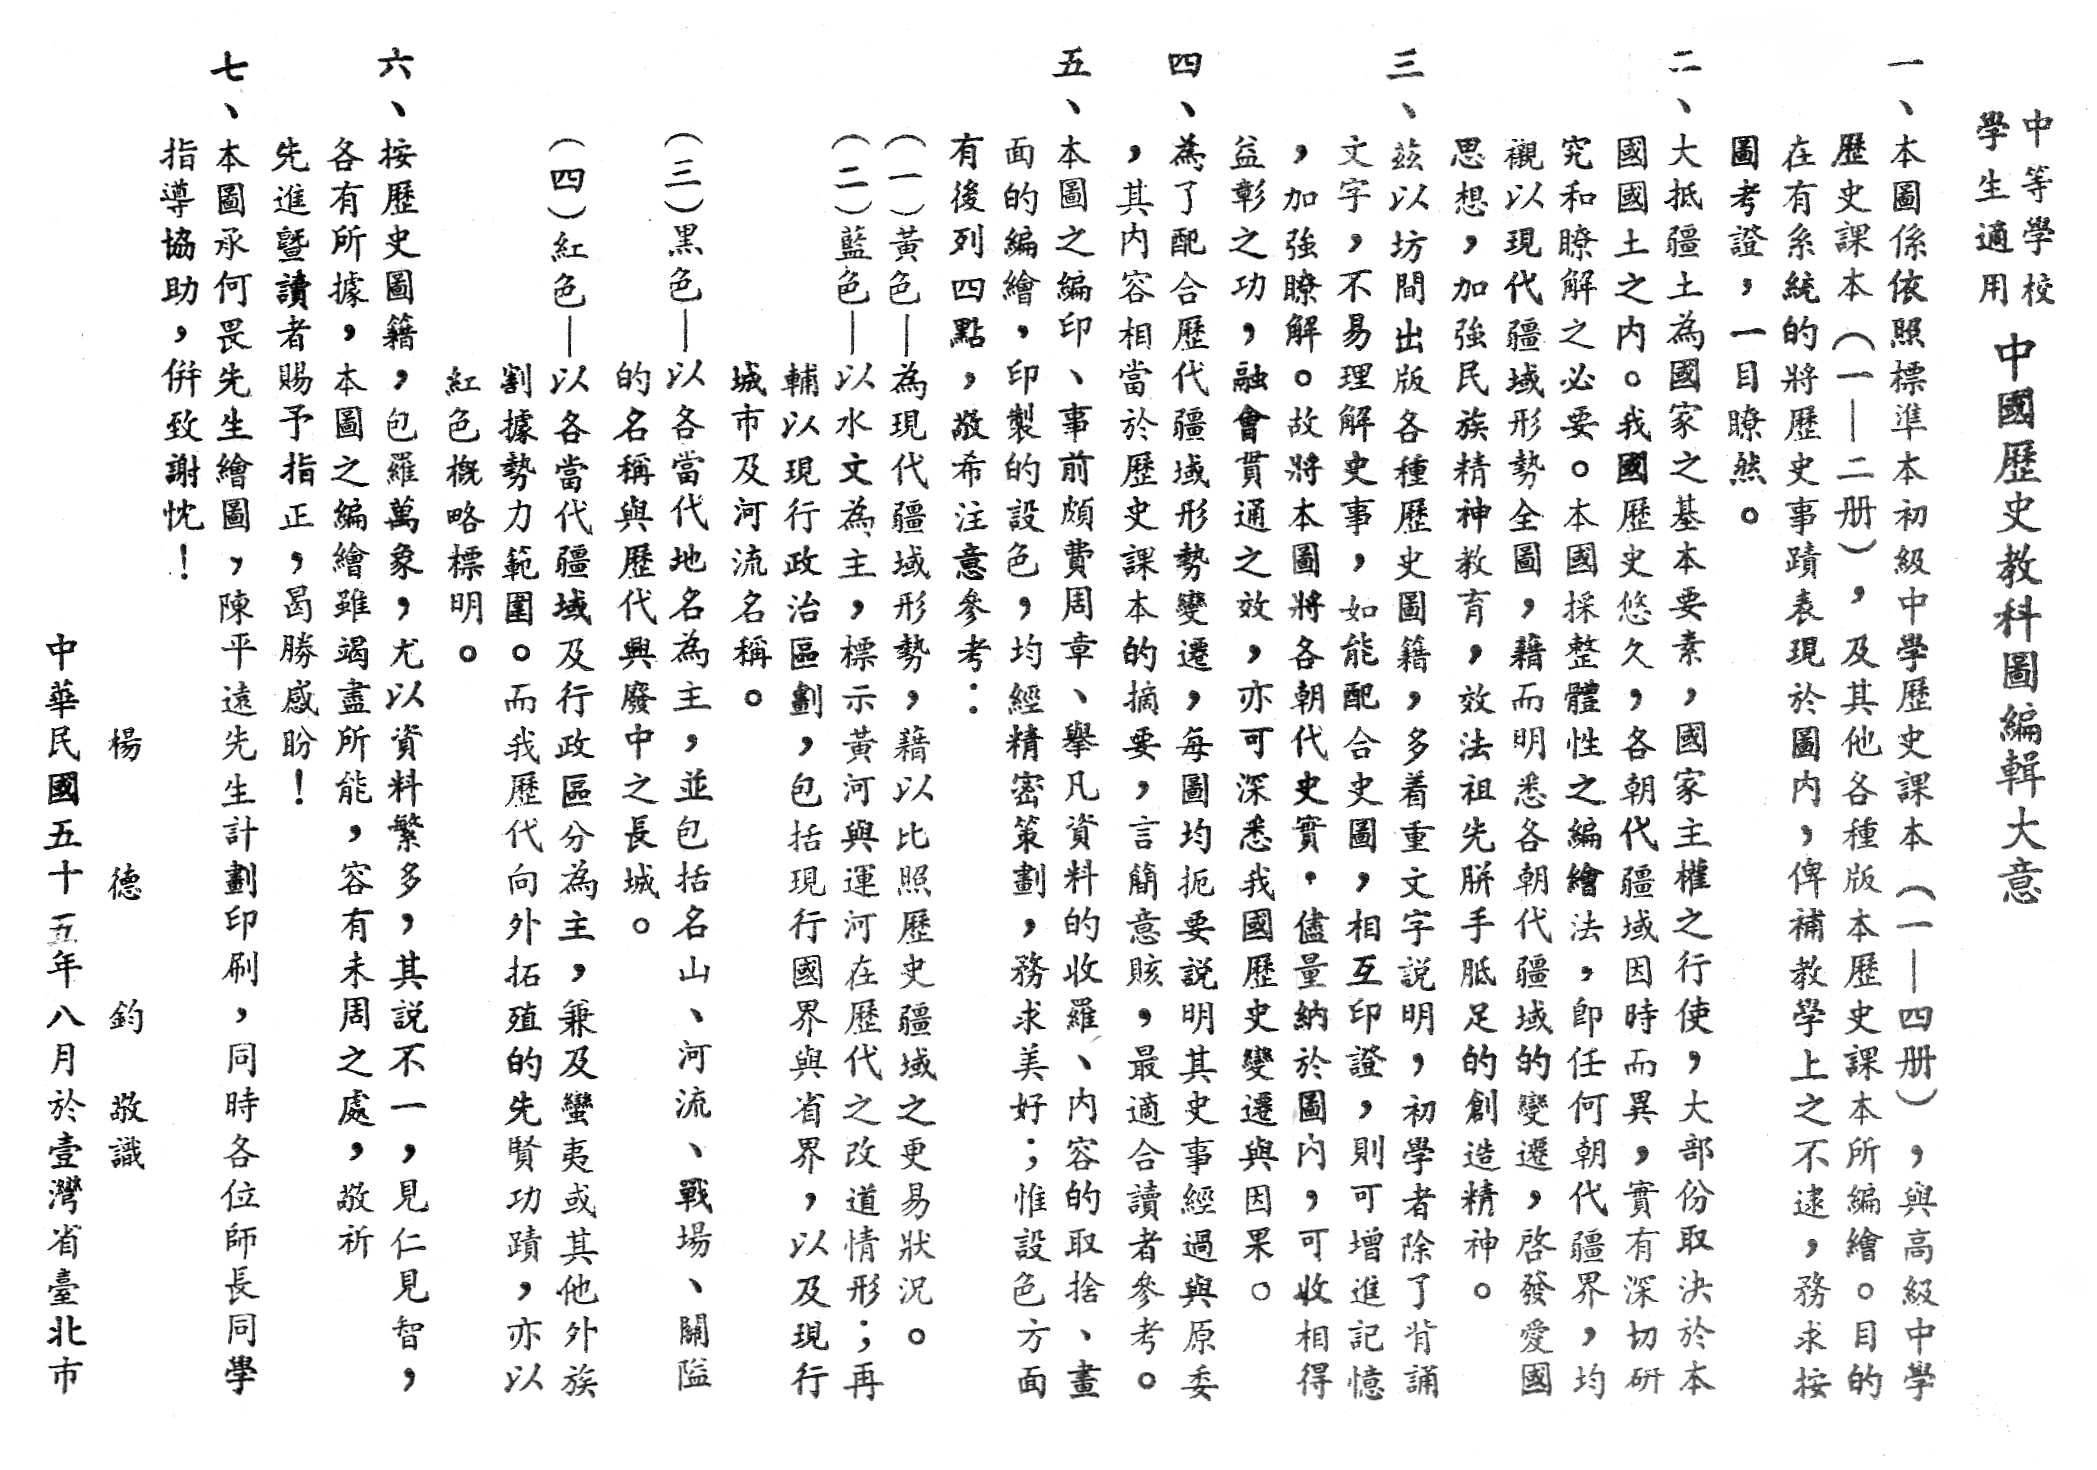 中等學校
學生適用
中國歷史教科圖編輯大意
一、本圖係依照標準本初級中學歷史課本（一—四册），與高級中學
歷史課本（一—二册），及其他各種版本歷史課本所編繪。目的
在有系統的將歷史事蹟表現於圖內，俾補教學上之不逮，務求按
圖考證，一目瞭然。
二、大抵疆土為國家之基本要素，國家主權之行使，大部份取決於本
國國土之內。我國歷史悠久，各朝代疆域因時而異，實有深切研
究和瞭解之必要。本國採整體性之編繪法，卽任何朝代疆界，均
襯以現代疆域形勢全圖，藉而明悉各朝代疆域的變遷，啓發愛國
思想，加強民族精神教育，效法祖先胼手胝足的創造精神。
三、茲以坊間出版各種歷史圖籍，多着重文字説明，初學者除了背誦
文字，不易理解史事，如能配合史圖，相互印證，則可增進記憶
，加強瞭解。故將本圖將各朝代史實，儘量納於圖內，可收相得
益彰之功，融會貫通之效，亦可深悉我國歷史變遷與因果。
四、為了配合歷代疆域形勢變遷，每圖均扼要説明其史事經過與原委
，其內容相當於歷史課本的摘要，言簡意賅，最適合讀者參考。
五、本圖之編印、事前頗費周章、擧凡資料的收羅、內容的取捨、畫
面的編繪，印製的設色，均經精密策劃，務求美好；惟設色方面
有後列四點，敬希注意參考：
（一）黃色—為現代疆域形勢，藉以比照歷史疆域之更易狀況。
（二）藍色—以水文為主，標示黃河與運河在歷代之改道情形；再
輔以現行政治區劃，包括現行國界與省界，以及現行
城市及河流名稱。
（三）黑色—以各當代地名為主，並包括名山、河流、戰場、關隘
的名稱與歷代興廢中之長城。
（四）紅色—以各當代疆域及行政區分為主，兼及蠻夷或其他外族
割據勢力範圍。而我歷代向外拓殖的先賢功蹟，亦以
紅色概略標明。
六、按歷史圖籍，包羅萬象，尤以資料繁多，其説不一，見仁見智，
各有所據，本圖之編繪雖竭盡所能，容有未周之處，敬祈
先進暨讀者賜予指正，曷勝感盼！
七、本圖承何畏先生繪圖，陳平遠先生計劃印刷，同時各位師長同學
指導協助，併致謝忱！
楊德鈞敬識
中華民國五十五年八月於壹灣省臺北市